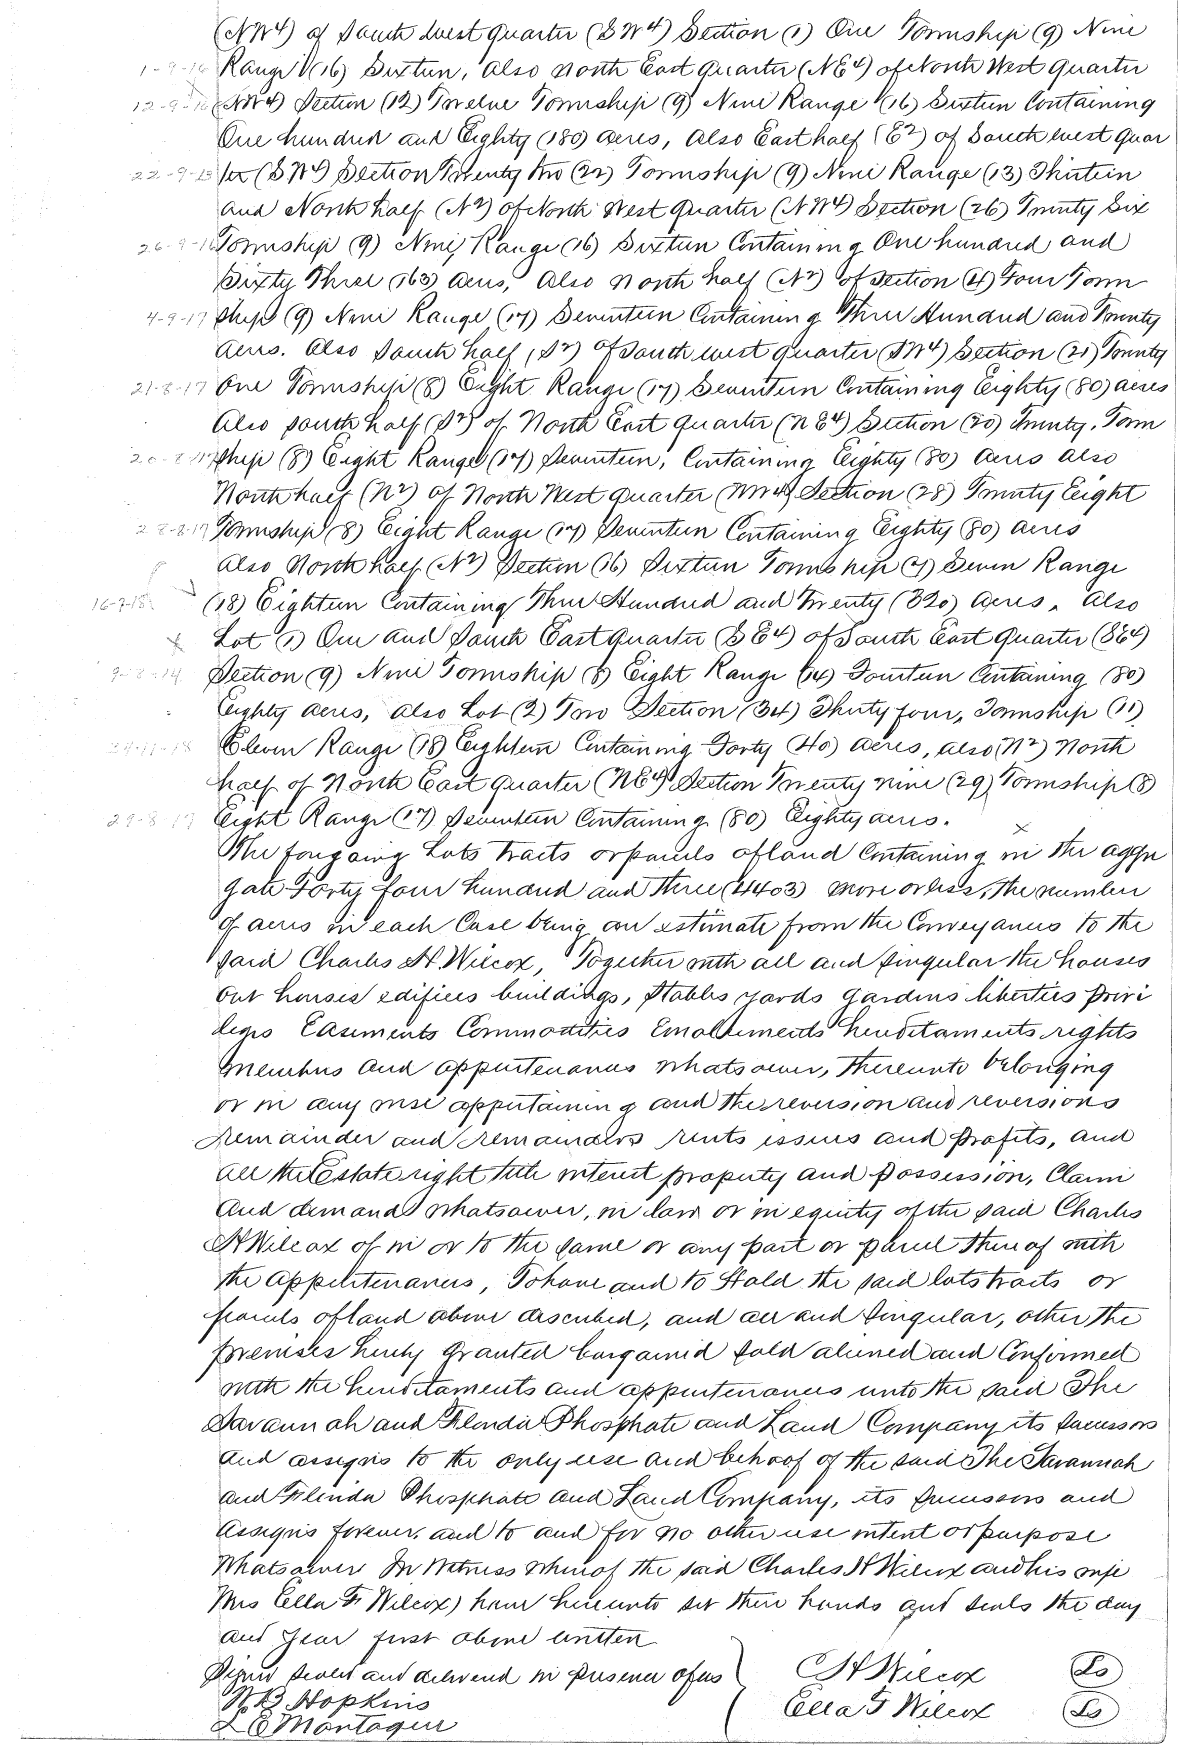 (NW4) of South West Quarter (SW4) Section (1) One Township (9) Nine
1-9-16 Range (16) Sixteen, Also North East Quarter (NE4) of North West Quarter
12-9-16 (NW4) Section (12) Twelve Township (9) Nine Range (16) Sixteen Containing
One hundred and Eighty (180) acres, Also East half (E2) of South West Quar
22-9-13 ter (SW4) Section Twenty two (22) Township (9) Nine Range (13) Thirteen
and North half (N2) of North West Quarter (NW4) Section (26) Twenty Six
26-9-16 Township (9) Nine, Range (16) Sixteen Containing One hundred and
Sixty Three (163) acres, Also North half (N2) of Section (4) Four Town
4-9-17 ship (9) Nine Range (17) Seventeen Containing Three Hundred and Twenty
Acres. Also South half (S2) of South West Quarter (SW4) Section (21) Twenty
21-8-17 One Township (8) Eight Range (17) Seventeen Containing Eighty (80) acres
Also South half (S2) of North East Quarter (NE4) Section (20) Twenty, Town
20-8-17 ship (8) Eight Range (17) Seventeen, Containing Eighty (80) Acres also
North half (N2) of North West Quarter (NW4) Section (28) Twenty Eight
28-8-17 Township (8) Eight Range (17) Seventeen Containing Eighty (80) acres
Also North half (N2) Section (16) Sixteen Township (7) Seven Range
16-7-18 (18) Eighteen Containing Three Hundred and Twenty (320) Acres. Also
x Lot (1) One and South East Quarter (SE4) of South East Quarter (SE4)
9-8-14 Section (9) Nine Township (8) Eight Range (14) Fourteen Containing (80)
Eighty acres, also Lot (2) Two Section (34) Thirty four, Township (11)
34-11-18 Eleven Range (18) Eighteen Containing Forty (40) acres, also (N2) North
half of North East Quarter (NE4) Section Twenty nine (29) Township (8)
29-8-17 Eight Range (17) Seventeen Containing (80) Eighty acres.
The foregoing Lots tracts or parcels of land Containing in the aggre x
gate Forty four hundred and three (4403) more or less, the number
of acres in each Case being an estimate from the Conveyances to the
said Charles H. Wilcox, Together with all and singular the houses
out houses edifices buildings, stables yards gardens liberties privi
leges Easements Commodities Emoluments hereditaments rights
members and appurtenances whatsoever, thereunto belonging
or in any wise appertaining and the reversion and reversions
remainder and remainders rents issues and profits, and
all the Estate right title interest property and possession, Claim
and demand whatsoever, in law or in equity of the said Charles
H Wilcox of in or to the same or any part or parcel thereof with
the appurtenances, To have and to Hold the said lots tracts or
parcels of land above described, and all and singular, other the
premises hereby granted bargained sold aliened and Confirmed
with the hereditaments and appurtenances unto the said The
Savannah and Florida Phosphate and Land Company its successors
and assigns to the only use and behoof of the said The Savannah
and Florida Phosphate and Land Company, its successors and
assigns forever, and to and for no other use intent or purpose
whatsoever In Witness whereof the said Charles H Wilcox and his wife
Mrs Ella F. Wilcox) have hereunto set their hands and seals the day
and year first above written
Signed sealed and delivered in presence of us C H Wilcox Ls
W B Hopkins Ella F Wilcox Ls
L E Montague